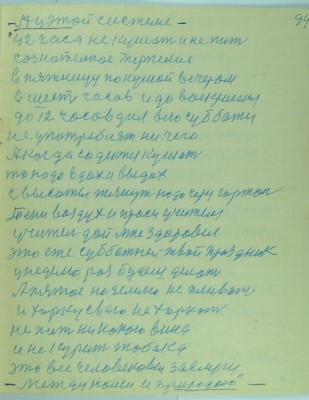 94
– А у этой системе –
42 часа не кушать и не пит
сознателное терпения
в пятницу покушой вечером
в шесть часов и до воскресения
до 12 часов дня всю субботу
не употреблят ни чего
А когда садитса кушат
то надо вдох и выдох
с высоты тянут надо чирез гортан
Тяни воздух и проси учителя
учител дай мне здоровия
это еже субботней твой праздник
у неделю раз будеш делат
А пятое на землю не плеват
и харку своего не харкат
не пит ни какого вина
и не курит тобака
это все человеком заслуги
– Между нами и природою" –